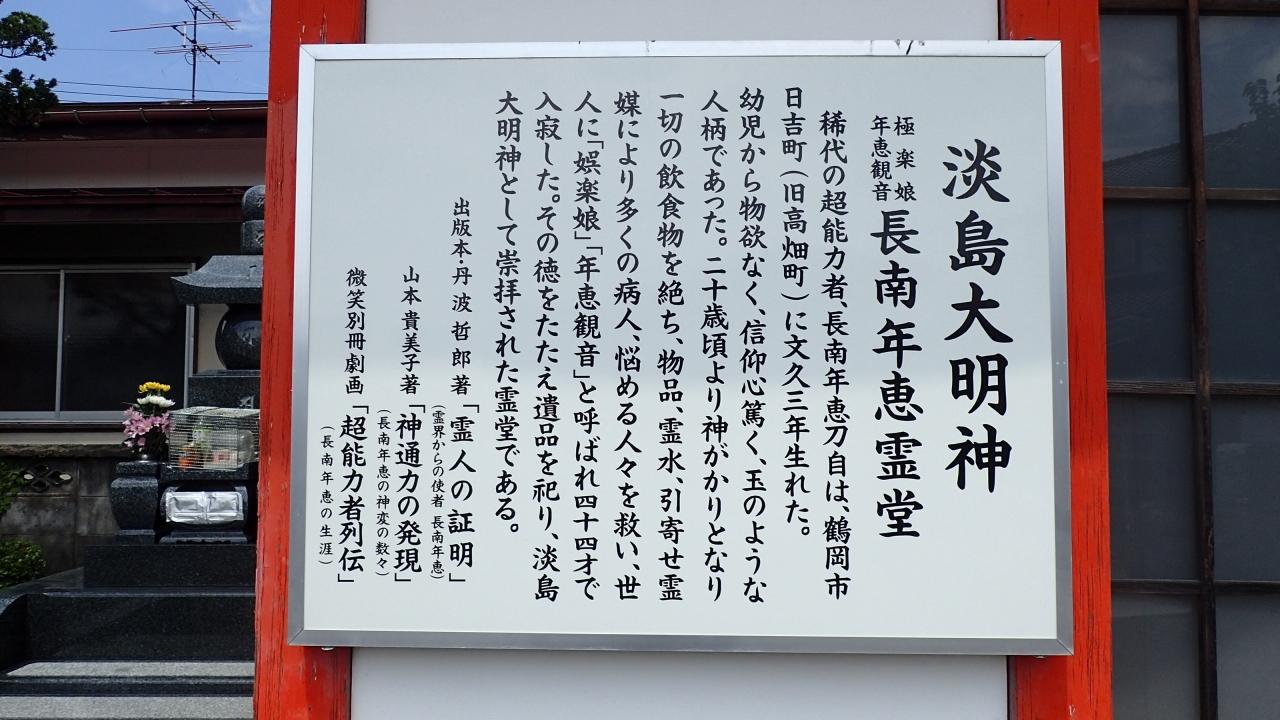 淡島大明神
極楽娘
年恵観音
長南年恵霊堂
稀代の超能力者、長南年恵刀自は、鶴岡市
日吉町(旧高畑町)に文久三年生れた。
幼児から物欲なく、信仰心篤く、玉のような
人柄であった。二十歳頃より神がかりとなり
一切の飲食物を絶ち、物品、霊水、引寄せ霊
媒により多くの病人、悩める人々を救い、世
人に「娯楽娘」「年恵観音」と呼ばれ四十四才で
入寂した。その徳をたたえ遺品を祀り、淡島
大明神として崇拝された霊堂である。
出版本・丹波哲郎著「霊人の証明」
(霊界からの使者 長南年恵)
山本貴美子著「神通力の発現」
(長南年恵の神変の数々)
微笑別冊劇画「超能力者列伝」
(長南年恵の生涯)